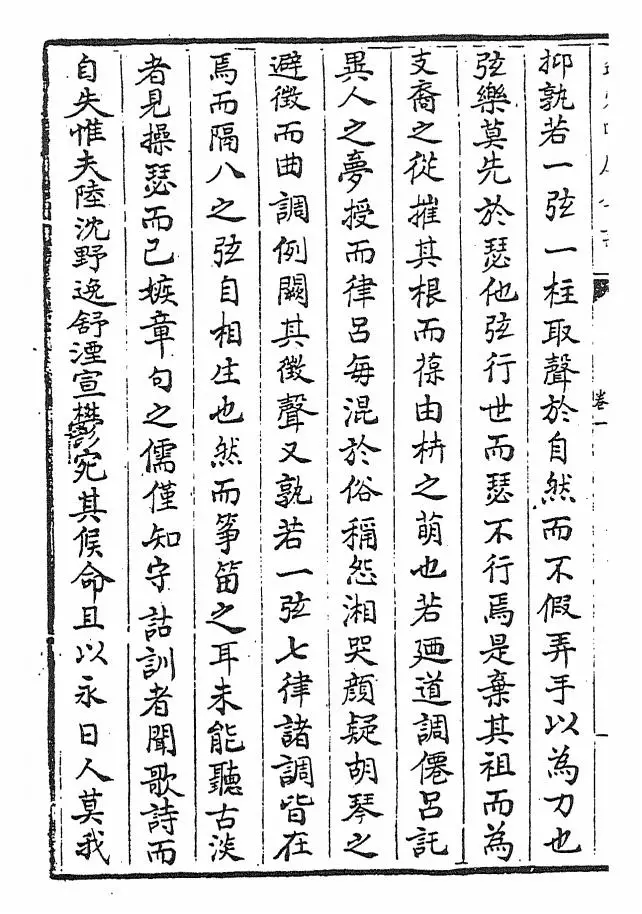 卷一
抑孰若一弦一柱取聲於自然而不假弄手以為力也
弦樂莫先於瑟他弦行世而瑟不行焉是棄其祖而為
支裔之從摧其根而葆由枿之萌也若廼道調僊呂託
異人之夢授而律呂每混於俗稱怨湘哭顔疑胡琴之
避徵而曲調例闕其徵聲又孰若一弦七律諸調皆在
焉而隔八之弦自相生也然而箏笛之耳未能聽古淡
者見操瑟而已嫉章句之儒僅知守詁訓者聞歌詩而
自失惟夫陸沈野逸舒湮宣鬱宛其俟命且以永日人莫我